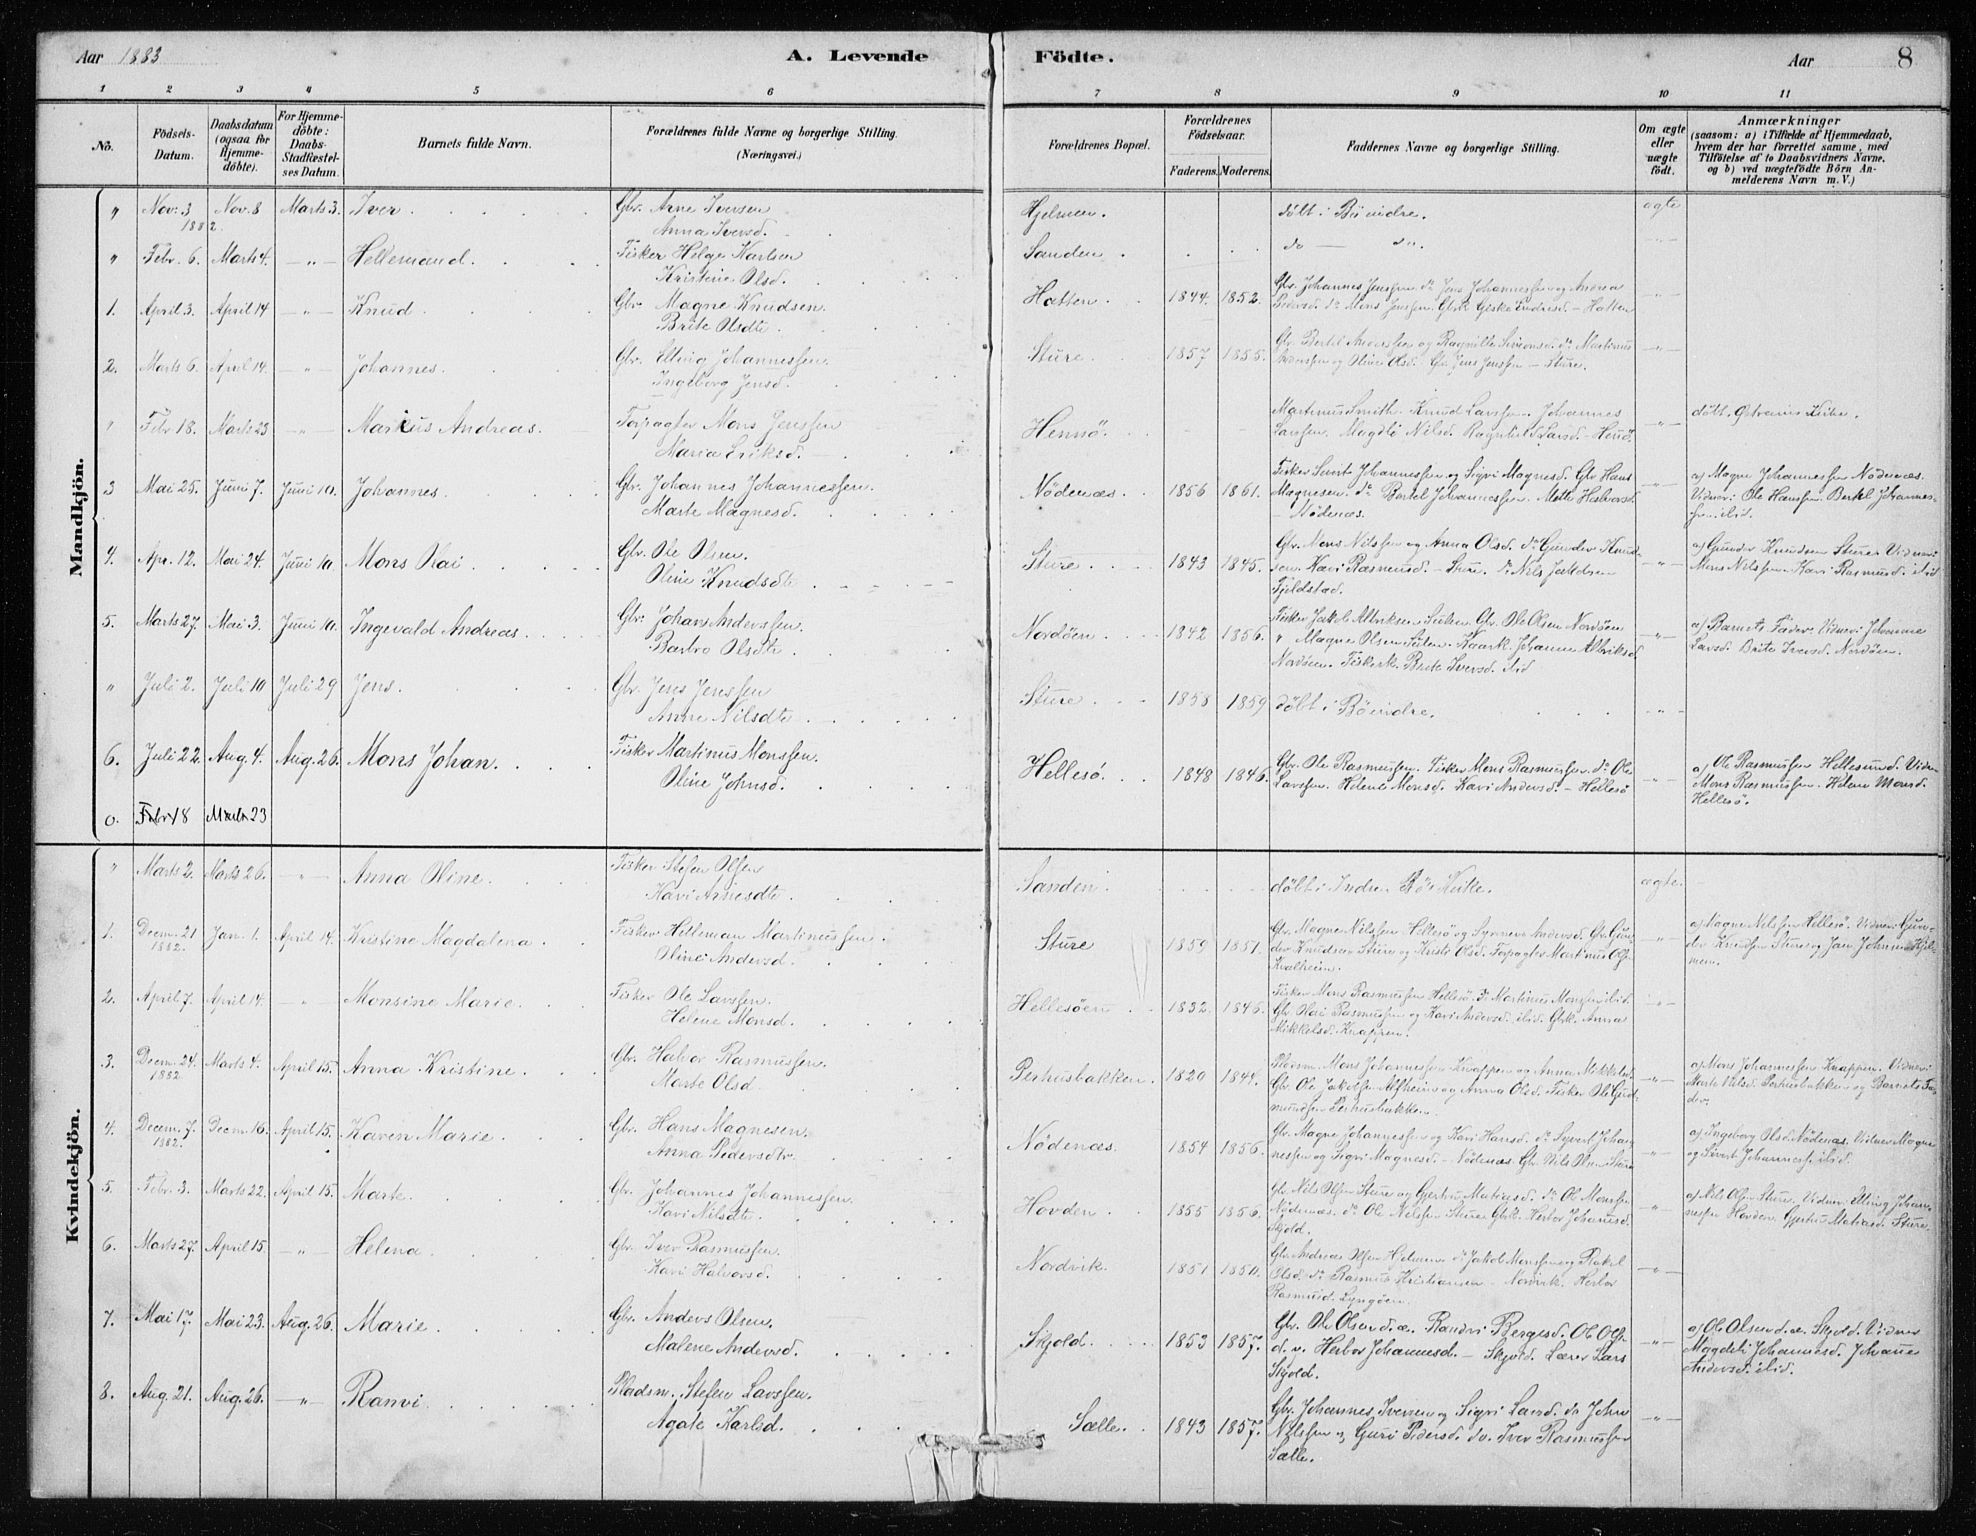 Aar 1883
A. Levende
Födte.
Aar
8
1 2 3 4 5 6 7 8 9 10 11
No.
Födsels-
Datum.
Daabsdatum
(ogsaa for
Hjemme-
döbte).
For Hjemme-
döbte:
Daabs-
Stadfæstel-
ses Datum.
Barnets fulde Navn.
Forældrenes fulde Navne og borgerlige Stilling.
(Næringsvei.)
Forældrenes Bopæl.
Forældrenes
Födselsaar.
Faderens. Moderens.
Faddernes Navne og borgerlige Stilling.
Om ægte
eller
uægte
födt.
Anmærkninger
(saasom: a) i Tilfælde af Hjemmedaab,
hvem der har forrettet samme, med
Tilföielse af to Daabsvidners Navne.
og b) ved uægtefödte Börn An-
melderens Navn m. V.)
Mandkjön.
" Nov. 3 1882. Nov. 8 Marts 3. Iver Gbr. Arne Iversen
Anna Iversd. Hjelmen. døbt i Bö indre. ægte
" Febr. 6. Marts 4. " Hellemand. Fisker Helge Karlsen
Kristine Olsd. Sanden do do
1. April 3. April 14 " Knud Gbr. Magne Knudsen
Brite Olsdtr. Hatten 1844. 1852. Gbr. Johannes Jenssen do Jens Johannessen og Andrea
Pedersd. do Mons Jenssen. Gbrk. Geske Endresd. - Hatten "
2. Marts 6. April 14. " Johannes. Gbr. Elling Johannessen
Ingeborg Jensd. Sture. 1857 1855. Gbr. Bertel Anderssen og Ragnilde Simonsd. do Martinus
Anderssen og Oline Olsd. Gbr. Jens Jenssen - Sture. "
" Febr 18. Marts 23 " Marius Andreas. Forpagter Mons Jenssen
Maria Eriksd. Hennö. Martinus Smith. Knud Larssen. Johannes
Larssen. Magdli Nilsd. Ragnhild Larsd. - Henö. " døbt
3 Mai 25. Juni 7. Juni 10. Johannes. Gbr. Johannes Johannessen
Marte Magnesd. Nödenæs. 1856 1861. Fisker Sivert Johannessen og Sigri Magnesd. Gbr Hans
Magnesen. do Bertel Johannessen. Mette Halvorsd.
- Nödenæs. " a) Magne Johannessen Nödenæs.
Vidner: Ole Hanssen. Bertel Johannes-
sen ibid.
4. Apr. 12. Mai 24. Juni 10. Mons Olai Gbr. Ole Olsen.
Oline Knudsdtr. Sture 1843 1845. Gbr. Mons Nilssen og Anna Olsd. do Gunder Knud-
sen. Kari Rasmusd. - Sture. do Nils Jakobsen
Fjeldstad. " a) Gunder Knudsen Sture. Vidner:
Mons Nilssen. Kari Rasmusd. ibid
5. Marts 27. Mai 3. Juni 10. Ingevald Andreas Gbr. Johan Anderssen.
Barbro Olsdtr. Nordöen 1842 1856. Fisker Jakob Albriksen Gbr. Ole Olsen Nordöen
" Magne Olsen Johanne Albriksd.
Nordöen. Fiskerk. Brite Iversd. ibid " a) Barnets Fader. Vidner: Johanne
Larsd. Brite Iversd. Nordöen.
" Juli 2. Juli 10 Juli 29 Jens. Gbr. Jens Jenssen
Anne Nilsdtr. Sture 1858 1859 döbt i Bö indre. "
6. Juli 22. Aug. 4. Aug. 26. Mons Johan. Fisker Martinus Monssen.
Oline Johnsd. Hellesö. 1848 1846. Gbr. Ole Rasmussen. Fisker Mons Rasmussen. do Ole
Larssen. Helene Monsd. Kari Andersd. - Hellesö " a) Ole Rasmussen Hellesund. Vidn.
Mons Rasmussen. Helene Monsd.
Hellesö.
o. Febr 18 Marts 23
Kvindekjön.
" Marts 2. Marts 26. " Anna Oline. Fisker Stefen Olsen
Kari Arnesdtr. Sanden döbt i Indre Bö Kirke. ægte.
1. Decm. 21 1882. Jan. 1. April 14. Kristine Magdalena Fisker Helleman Martinussen.
Oline Andersd. Sture 1859 1851. Gbr. Magne Nilssen Hellesö og Synneve Andersd. Gbr. Gun-
der Knudsen Sture og Kristi Olsd. Forpagter Martinus Ols.
Kvalheim. " a) Magne Nilssen Hellesö. Vidner: Gun-
der Knudsen Sture og Jan Johnsen Hjel-
men.
2. April 7. April 14. " Monsine Marie. Fisker Ole Larssen.
Helene Monsd. Hellesöen 1832. 1846. Fisker Mons Rasmussen Hellesö. do Martinus Monssen ibid.
Gbr. Olai Rasmussen og Kari Andersd. ibid. Gbrk. Anna
Mikkelsd. Knappen. "
3. Decm. 24. 1882 Marts 4. April 15. Anna Kristine. Gbr. Halvor Rasmussen.
Marte Olsd. Perhusbakken. 1820 1844. Pladsm. Mons Johannessen Knappen og Anna Mikkelsd.
Gbr. Ole Jakobsen Alfheim og Anna Olsd. Fisker Ole Gud-
mundsen Perhusbakken. " a) Mons Johannessen Knappen. Vidner:
Marte Nilsd. Perhusbakken og Barnets Fa-
der.
4. Decem. 7. 1882 Decm. 16. April 15. Karen Marie. Gbr. Hans Magnesen.
Anna Pedersdtr. Nödenæs. 1854 1856. Gbr. Magne Johannessen og Kari Hansd. do Sivert Johan-
nessen og Sigri Magnesd. - Nödenæs. Gbr. Nils Olsen Sture " a) Ingeborg Olsd. Nödenæs. Vidner: Magne
og Sivert Johannessen ibid.
5. Febr. 3. Marts 22. April 15. Marte. Gbr. Johannes Johannessen.
Kari Nilsdtr. Hovden 1855 1856. Gbr. Nils Olsen Sture og Gjertru Matiasd. do Ole Monssen
Nödenæs. do Ole Nilssen Sture. Gbrk. Herbor Johannesd.
Skjold. " a) Nils Olsen Sture. Vidner: Elling Johan-
nessen Hovden. Gjertru Matiasd. Sture.
6. Marts 27. April 15. " Helena. Gbr. Iver Rasmussen.
Kari Halvorsd. Nordvik. 1851 1850. Gbr. Andreas Olsen Hjelmen. do Jakob Monssen og Rakel
Olsd. do Rasmus Kristiansen - Nordvik. Herbor
Rasmusd. Lyngöen. "
7. Mai 17. Mai 23. Aug. 26. Marie. Gbr. Anders Olsen.
Malene Andersd. Skjold. 1853 1857. Gbr. Ole Olsen d. æ. Randvi Bergesd. Ole Ols.
d. y. Herbor Johannesd. - Skjold. Lærer Lars
Skjold. " a) Ole Olsen d. æ. Skjold. Vidner
Magdeli Johannesd. Johanne
Andersd. ibid.
8. Aug. 21. Aug. 26. " Ranvi. Pladsm. Stefen Larssen.
Agate Karlsd. Sælle. 1843 1857. Gbr. Johannes Iversen og Sigri Larsd. do John
Nilssen og Guri Pedersd. do. Iver Rasmussen
Sælle. "